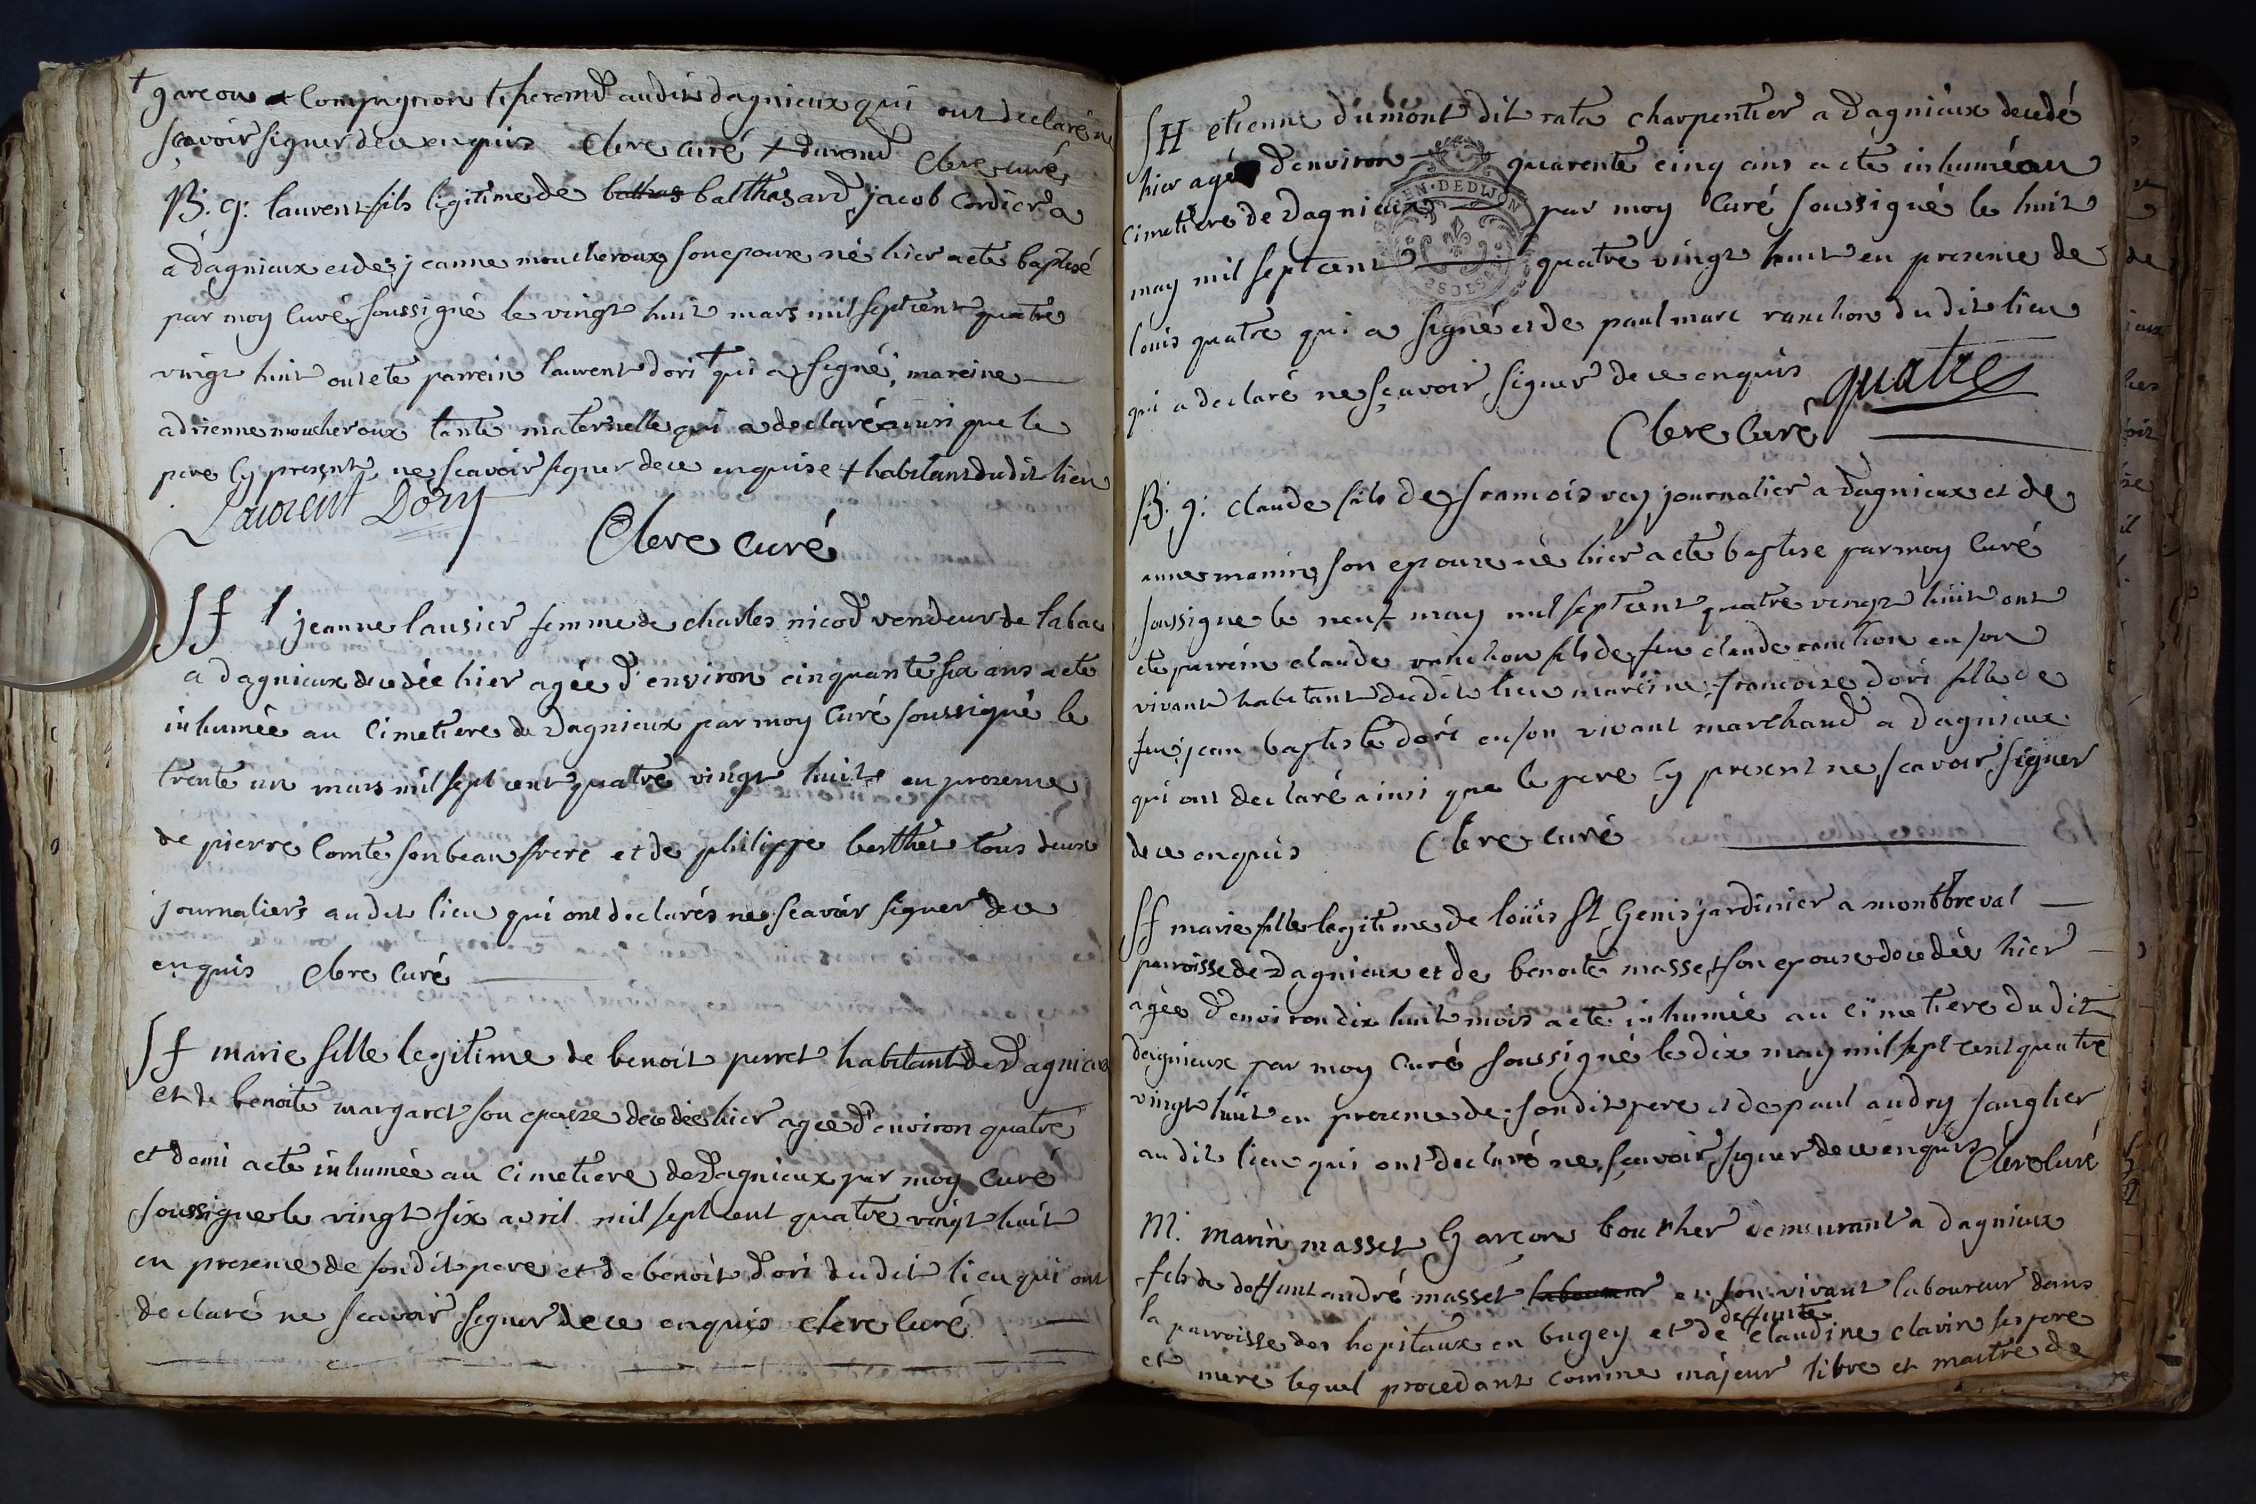 + garcon et Compagnion tisserand audit dagnieux qui ont declaré ne
scavoir signer de ce enquis Clere curé + durand Clere curé
B. g: laurent fils legitime de balthasard jacob Cordier a
a dagnieux et de jeanne moucheroux son epouse né hier a eté baptisé
par moy Curé soussigné le vingt huit mars mil sept cent quatre
vingt huit ont eté parrein laurent dori + qui a signé, mareine
adrienne moucheroux tante maternelle qui a declaré ainsi que le
pere cy present, ne scavoir signer de ce enquise + habitant dudit lieu
Laurent Dory
Clere curé
Sf jeanne lausier femme de charles nicod vendeur de tabac
a dagnieux decedée hier agée d'environ cinquante six ans a eté
inhumée au Cimetiere de Dagnieux par moy Curé soussigné le
trente un mars mil sept cent quatre vingt huit en presence
de pierre Comte son beau frere et de philippe berthet tous deux
journaliers audit lieu qui ont declarés ne scavoir signer de ce
enquis Clere Curé
Sf marie fille legitime de benoit perret habitant de Dagnieux
et de benoite margaret son epouse decedée hier agée d'environ quatre
et demi a eté inhumée au Cimetiere de Dagnieux par moy Curé
soussigné le vingt six avril mil sept cent quatre vingt huit
en presence de son dit pere et de benoit dori dudit lieu qui ont
declaré ne scavoir signer de ce enquis clere Curé
SH etienne dumont dit rata charpentier a Dagnieux decedé
hier agé d'environ quarente cinq ans a eté inhumé au
cimetiere de Dagnieux par moy Curé soussigné le huit
may mil sept cent quatre vingt huit en presence de
louis quatre qui a signé et de paul marc ranchon dudit lieu
qui a declaré ne sçavoir signer de ce enquis quatre
Clere Curé
B. g: Claude fils de francois rey journalier a Dagnieux et de
anne monin son epouse né hier a eté baptise par moy Curé
soussigne le neuf may mil sept cent quatre vingt huit ont
eté parrein claude ranchon fils de feu claude ranchon en son
vivant habitant dudit lieu mareine francoise dori fille de
feu jean baptiste dori en son vivant marchand a Dagnieux
qui ont declaré ainsi que le pere cy present ne scavoir signer
de ce enquis Clere curé
Sf marie fille legitime de loüis St Genis jardinier a montbreval
parroisse de Dagnieux et de benoite masset son epouse decedée hier
agée d'environ dix huit mois a eté inhumée au cimetiere dudit
dagnieux par moy Curé soussigné le dix may mil sept cent quatre
vingt huit en presence de son dit pere et de paul audry sanglier
audit lieu qui ont declaré ne sçavoir signer de ce enquis Clere Curé
M. marin masset garçon boucher demeurant a dagnieux
fils de deffunt andré masset laboureur en son vivant laboureur dans
la parroisse des hopitaux en bugey et de deffunte claudine clavin ses pere
et mere lequel procedant comme majeur libre et maitre de